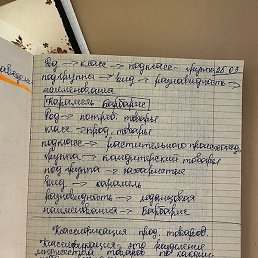 Род → класс → подкласс → группа 25.03
подгруппы → вид → разновидность →
наименования
Карамель Барбарис
Род → потреб. товары
класс → прод. товары
подкласс → растительного происхожд.
группа → кондитерский товары
под группа → сахаристые
вид → карамель
разновидность → леденцовая
наименования → Барбарис
Классификация прод. товаров.
Классификация - это разделение
множества товаров по